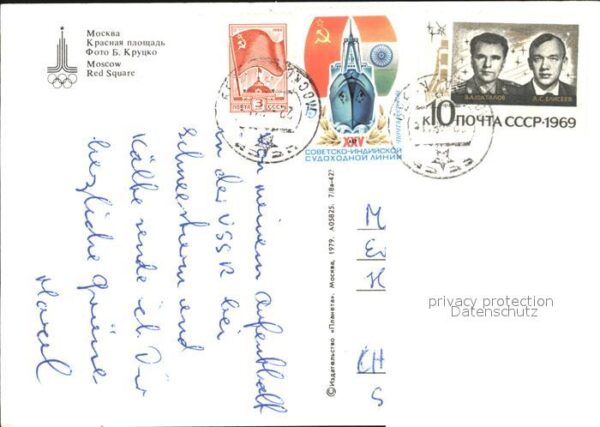 Москва
Красная площадь
Фото Б. Круцко
Moscow
Red Square
ПОЧТА 3 СССР
XXV
СОВЕТСКО-ИНДИЙСКОЙ
СУДОХОДНОЙ ЛИНИИ
В.А.ШАТАЛОВ А.С.ЕЛИСЕЕВ
К 10 ПОЧТА СССР·1969
МОСКВА
meinem Aufenthalt
in der UdSSR bei
Schneesturm und
Kälte sende ich Dir
herzliche Grüsse
Marcel
© Издательство «Планета». Москва, 1979. А05825. 7/8а-427
M
H
CH
S
privacy protection
Datenschutz